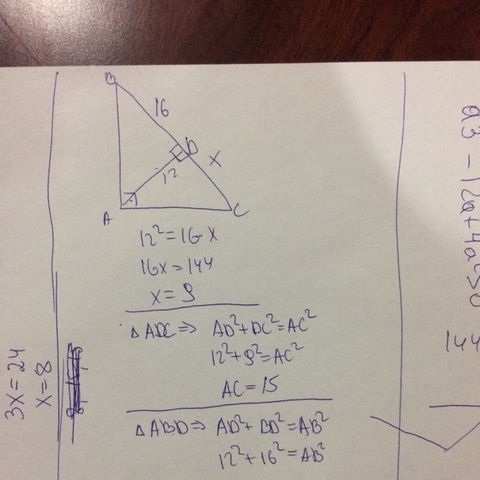 B
16
D
x
12
A
C
12² = 16x
16x = 144
x = 9
△ADC ⇒ AD² + DC² = AC²
12² + 9² = AC²
AC = 15
△ABD ⇒ AD² + BD² = AB²
12² + 16² = AB²
3x = 24
x = 8
144